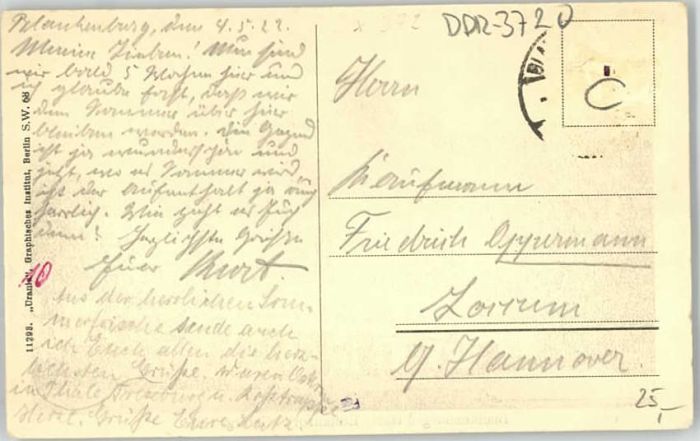 Blankenburg, den 4.5.22.
Meine Lieben! Nun sind
wir bald 5 Wochen hier und
ich glaube fast, daß wir
den Sommer über hier
bleiben werden. Die Gegend
ist ja wunderschön und
jetzt, wo es Sommer wird,
ist der Aufenthalt ja ganz
herrlich. Wie geht es Euch
denn? Herzlichste Grüße
Euer Kurt.
Aus der herrlichen Som-
merfrische sende auch
ich Euch allen die herz-
lichsten Grüße. Waren Ostern
in Thale, Treseburg u. Roßtrappe
Herzl. Grüße Eure
11293. „Urania“, Graphisches Institut, Berlin S.W. 68
10
DDR-3720
BLA
Herrn
Kaufmann
Friedrich Oppermann
b/. Hannover.
25,-